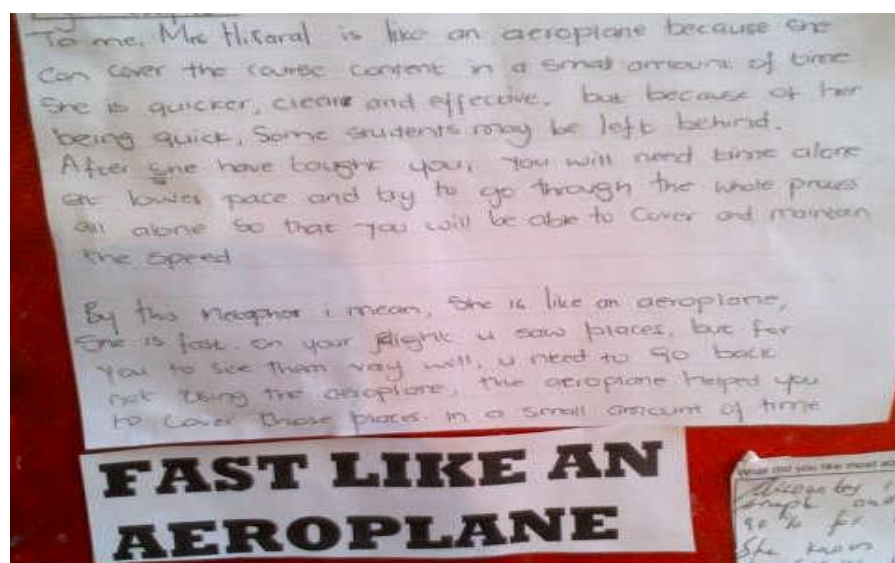 To me, Mrs is like an aeroplane because she
can cover the course content in a small amount of time
She is quicker, clear and effective. but because of her
being quick, Some students may be left behind.
After she have taught you, you will need time alone
at lower pace and try to go through the whole process
all alone so that you will be able to cover and maintain
the speed
By this metaphor i mean, She is like an aeroplane,
She is fast. on your flight u saw places, but for
you to see them very well, u need to go back
not using the aeroplane, the aeroplane helped you
to cover those places. in a small amount of time
FAST LIKE AN
AEROPLANE
What did you like most
graph
90 % for
She knows